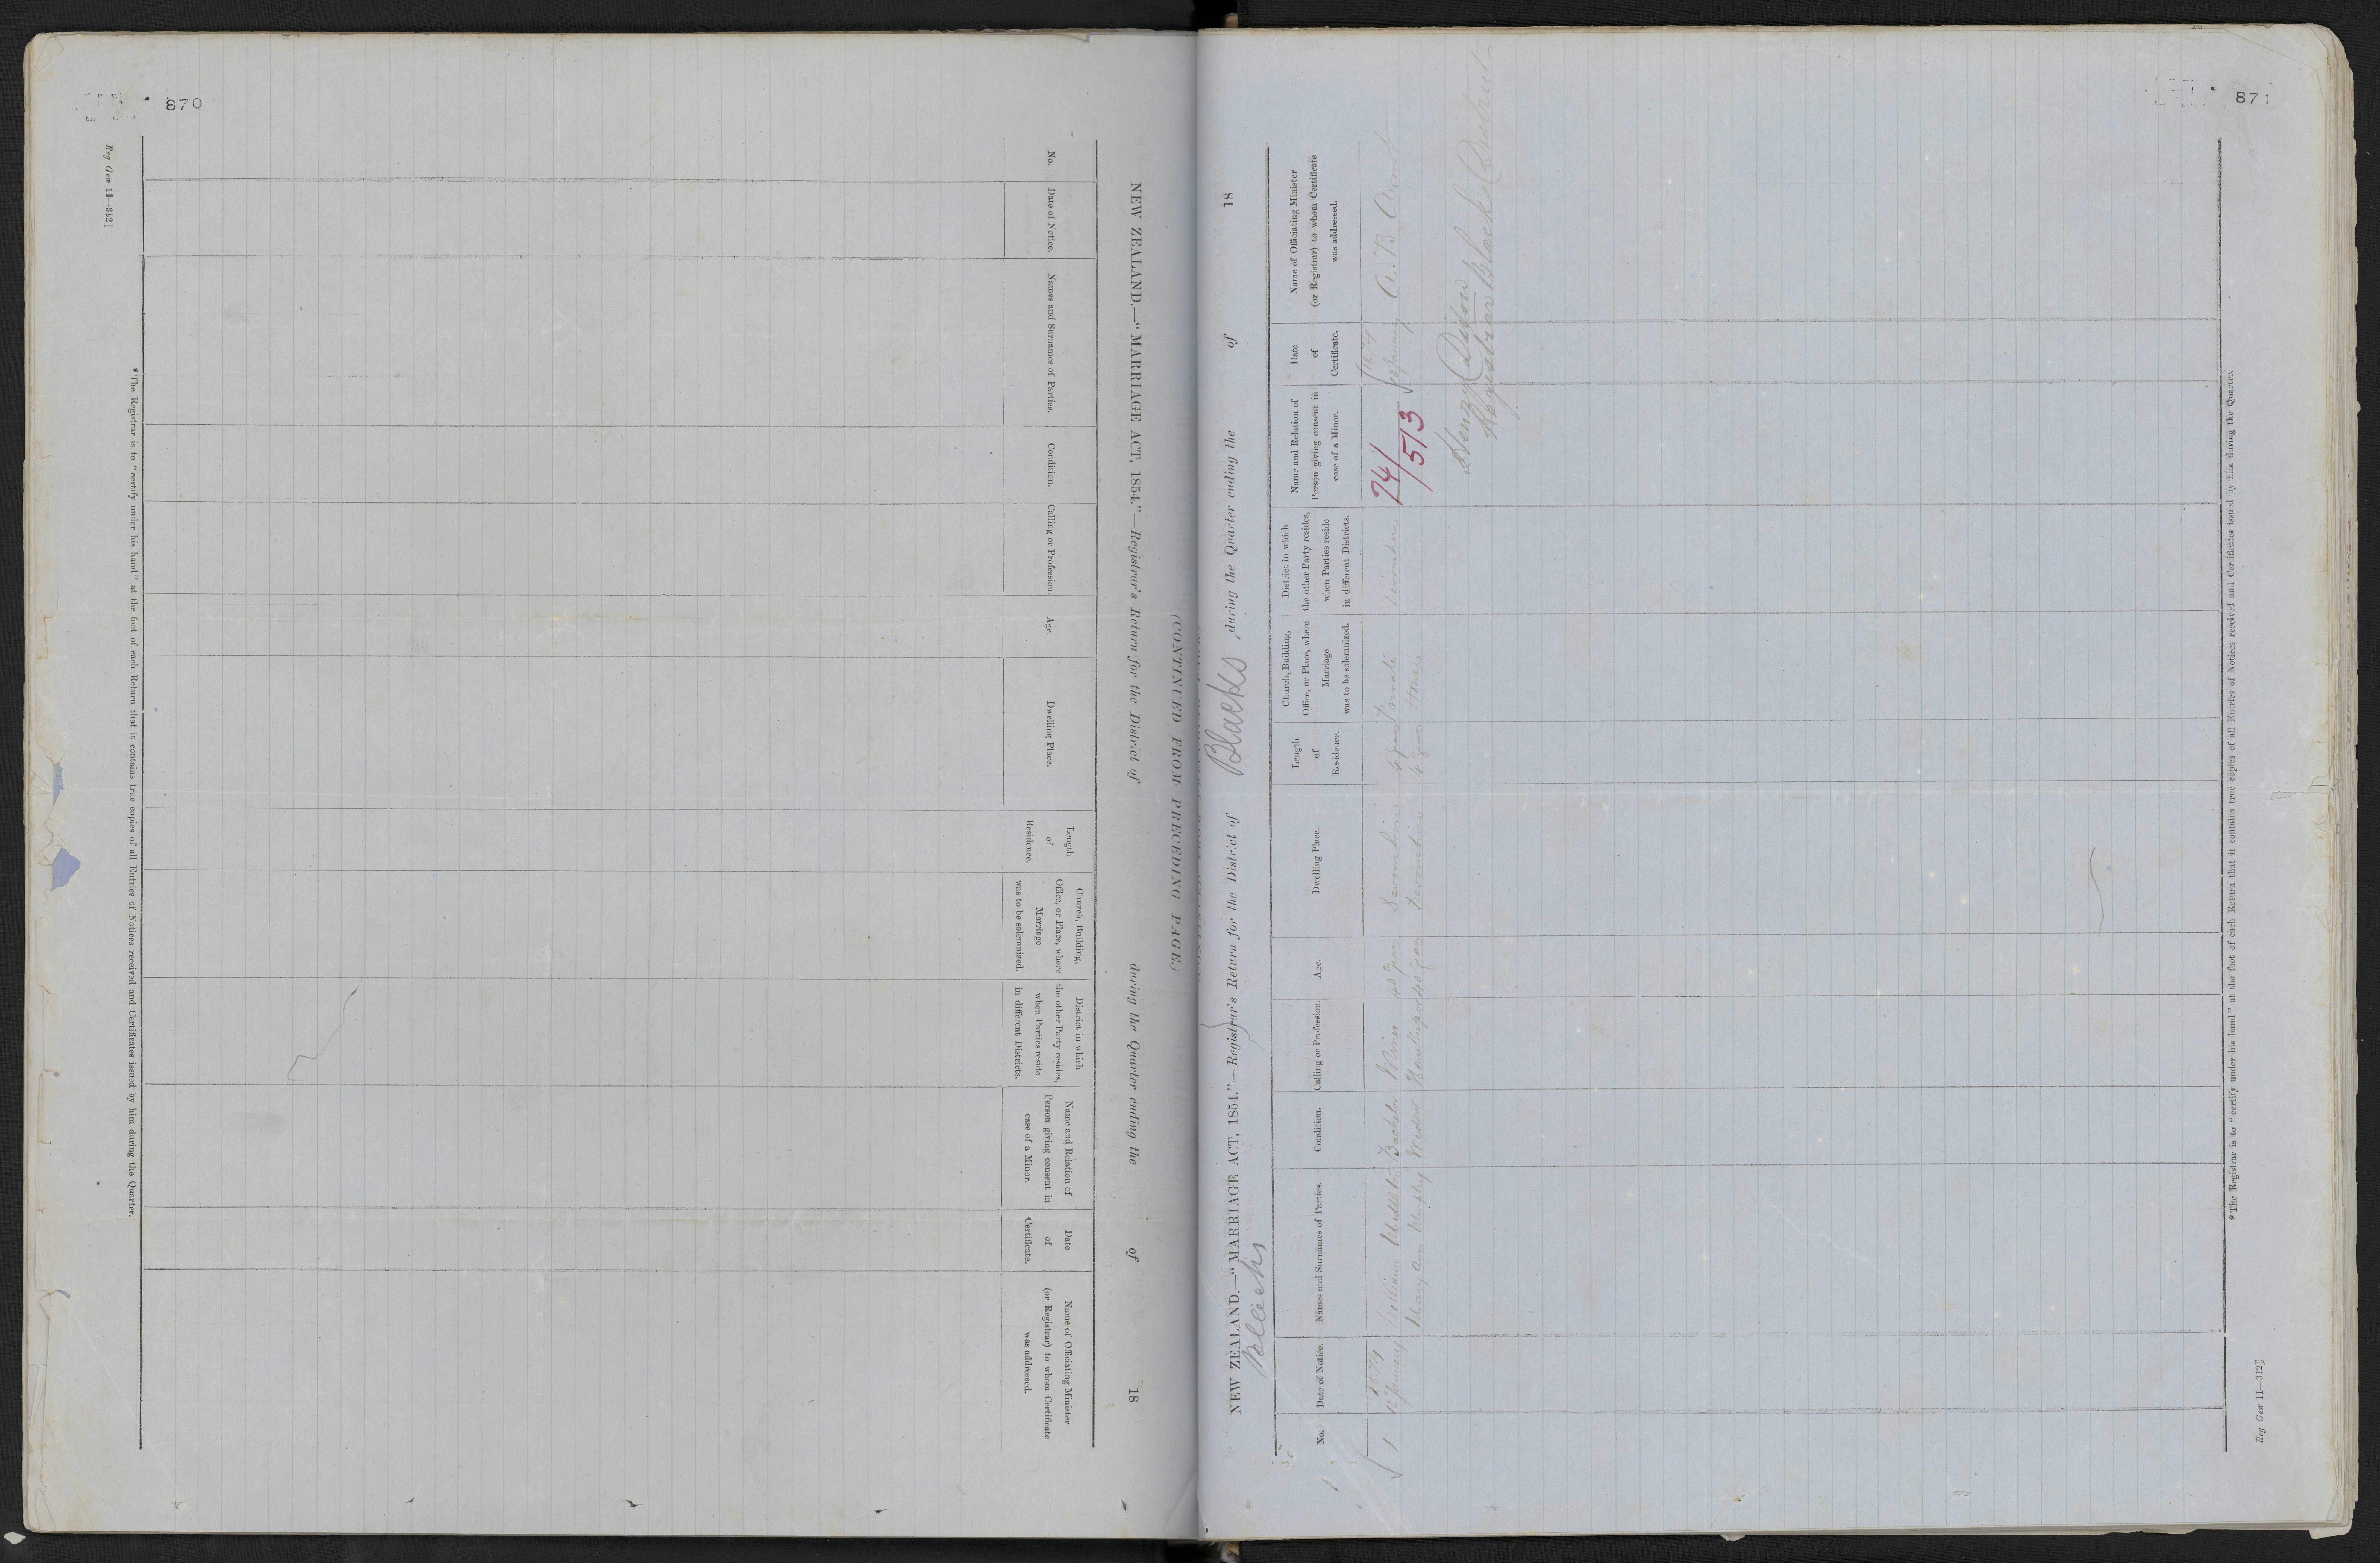 870
Reg Gen 11—312]
(CONTINUED FROM PRECEDING PAGE.)
NEW ZEALAND.—“MARRIAGE ACT, 1854.”—Registrar's Return for the District of during the Quarter ending the of 18
No.
Date of Notice.
Names and Surnames of Parties.
Condition.
Calling or Profession.
Age.
Dwelling Place.
Length
of
Residence.
Church, Building,
Office, or Place, where
Marriage
was to be solemnized.
District in which
the other Party resides,
when Parties reside
in different Districts.
Name and Relation of
Person giving consent in
case of a Minor.
Date
of
Certificate.
Name of Officiating Minister
(or Registrar) to whom Certificate
was addressed.
* The Registrar is to “certify under his hand” at the foot of each Return that it contains true copies of all Entries of Notices received and Certificates issued by him during the Quarter.
871
NEW ZEALAND.—“MARRIAGE ACT, 1854.”—Registrar's Return for the District of Blacks, during the Quarter ending the of 18
Blacks
No.
Date of Notice.
Names and Surnames of Parties.
Condition.
Calling or Profession.
Age.
Dwelling Place.
Length
of
Residence.
Church, Building,
Office, or Place, where
Marriage
was to be solemnized.
District in which
the other Party resides,
when Parties reside
in different Districts.
Name and Relation of
Person giving consent in
case of a Minor.
Date
of
Certificate.
Name of Officiating Minister
(or Registrar) to whom Certificate
was addressed.
1874
1 January William Bachelor Miner 40 years 4 years Private 74/513 January A. B. Arnot
Mary Ann Widow Housekeeper 40 years 4 years House
Henry
Registrar Blacks District
* The Registrar is to “certify under his hand” at the foot of each Return that it contains true copies of all Entries of Notices received and Certificates issued by him during the Quarter.
Reg Gen 11—312]